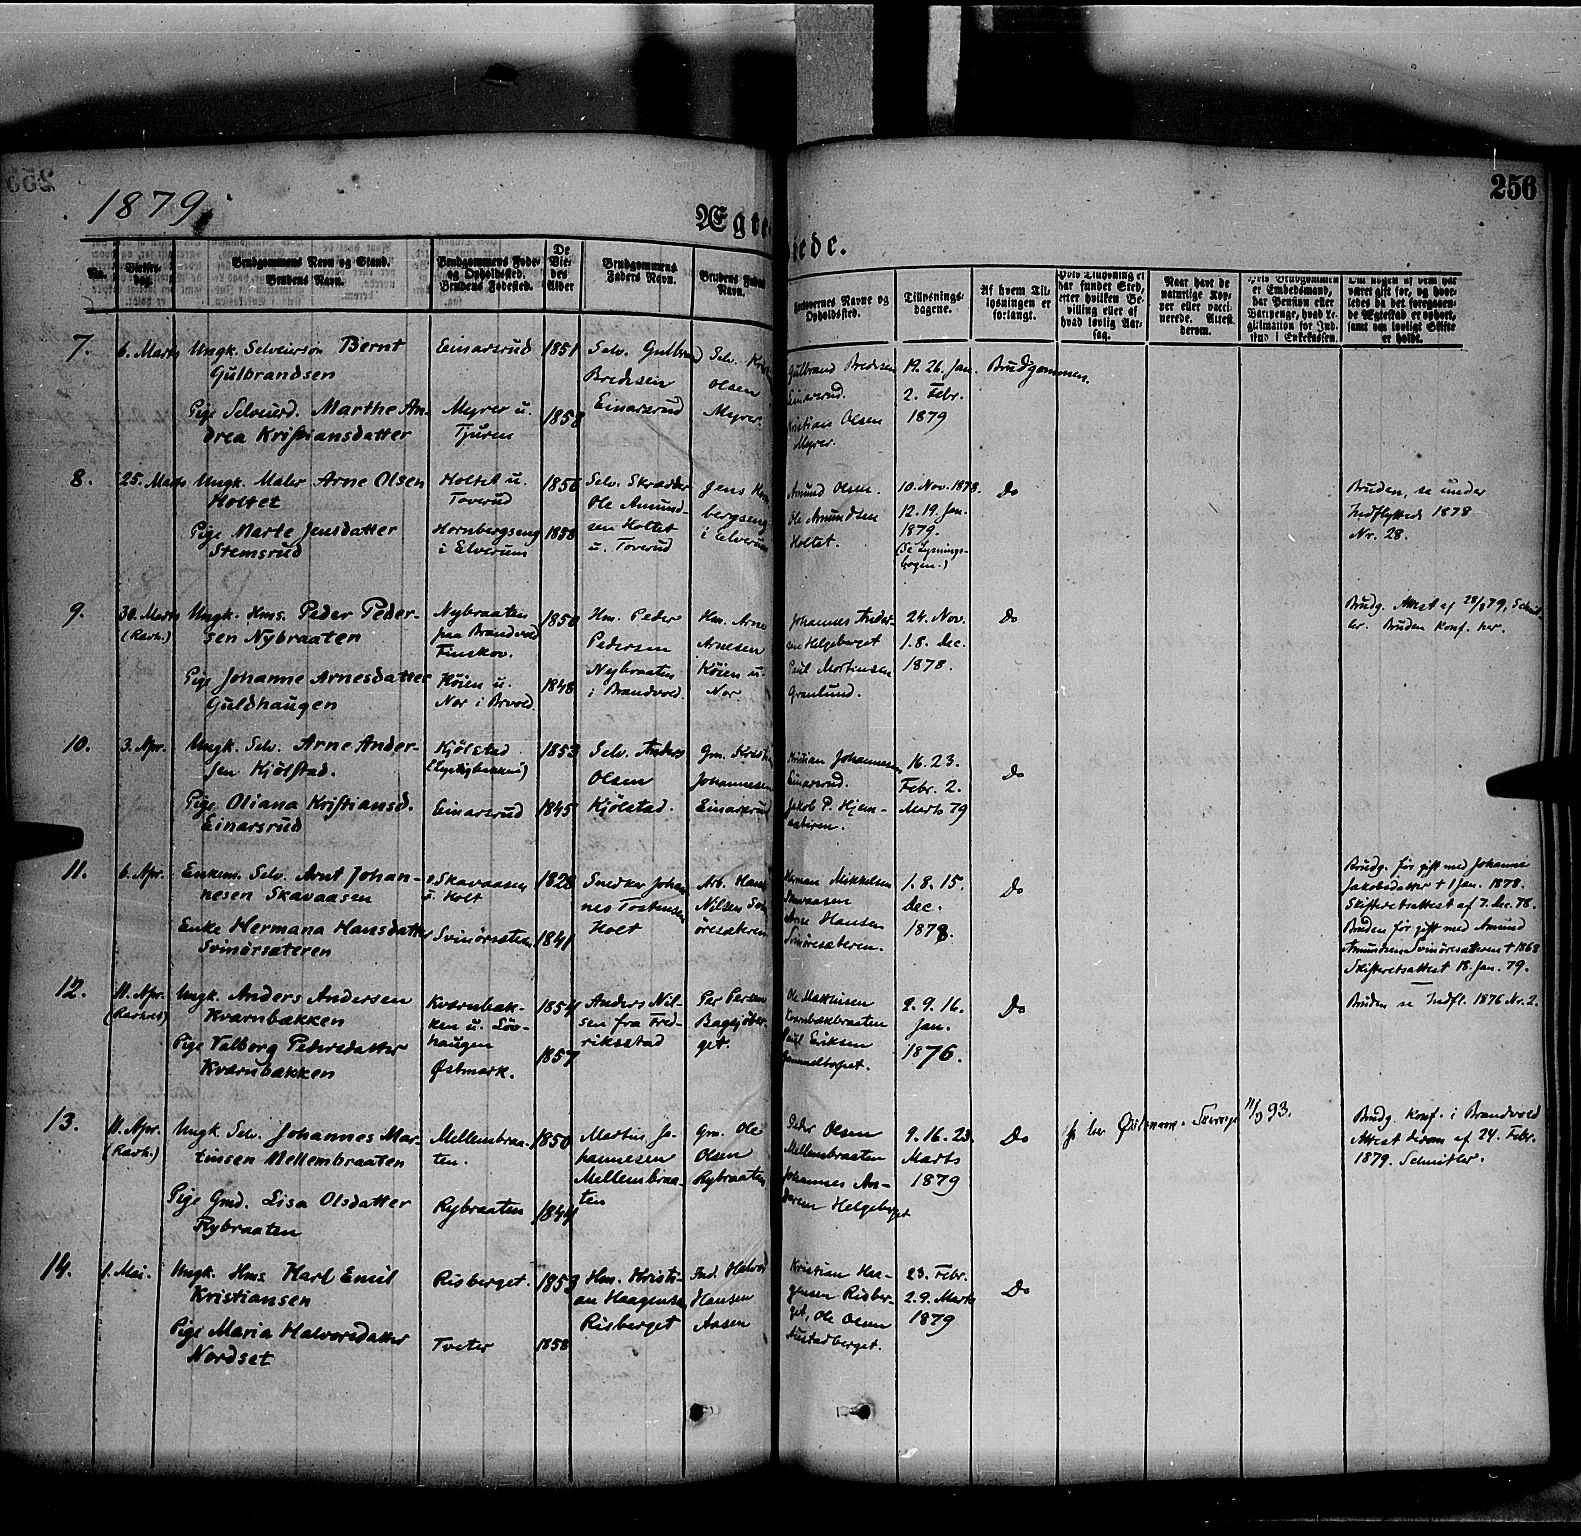 1879.
256
Ægte
No.
Brudgommens Navn og Stand.
Brudens Navn.
Brudgommens Føde- og Opholdssted.
Brudens Fødested.
De Vie-
des
Alder
Brudgommens
Faders Navn.
Brudens Faders
Navn.
Forlovernes Navne og
Opholdssted.
Tillysnings-
dagene.
Af hvem Til-
lysningen er
forlangt.
Naar havt de
naturlige Kop-
per eller vacci-
nerede. Attest
derom.
7.
6. Marts
Ungk. Selveiersøn Bernt
Gulbrandsen
Pige Selveierd. Marthe An-
drea Kristiansdatter
Einarsrud
Myrer u.
Tjuren
1851
1858
Selv. Gulbrand
Bredesen
Einarsrud
Olsen
Myrer
Gulbrand Bredesen
Einarsrud.
Kristian Olsen
Myrer.
19. 26. Jan.
2. Febr.
1879
Brudgommen.
8.
25. Marts
Ungk. Maler Arne Olsen
Holtet
Pige Marte Jensdatter
Stemsrud
Holtet u.
Toverud
Hornbergseng
i Elverum
1856
1858
Selv. Skrædder
Ole Amund-
sen Holtet
u. Toverud
Jens Horn-
bergseng
i Elverum
Amund Olsen.
Ole Amundsen
Holtet.
10. Nov. 1878.
12. 19. Jan.
1879.
(Se Lysnings-
bogen.)
Do
Bruden, se under
Indflyttede 1878
Nr. 28.
9.
30. Marts
(Ravh.)
Ungk. Hms. Peder Peder-
sen Nybraaten
Pige Johanne Arnesdatter
Guldhaugen
Nybraaten
paa Brandvold
Finskov.
Køien u.
Nor i Brvold.
1850
1848
Hm. Peder
Pedersen
Nybraaten
i Brandvold.
Hm. Arne
Arnesen
Køien u.
Nor
Johannes Ander-
sen Helgeberget
Paul Mortinsen
Granlund.
24. Nov.
1. 8. Dec.
1878.
Do
Brudg. Attest af 28/3 79, Schmit-
ler. Bruden konf. her.
10.
3. Apr.
Ungk. Selv. Arne Ander-
sen Kjølstad.
Pige Oliana Kristiansd.
Einarsrud
Kjølstad
Einarsrud
1853
1845
Selv. Anders
Olsen
Kjølstad.
Gm. Kristian
Johannesen
Einarsrud
Kristian Johannesen
Einarsrud.
Jakob P. Hjem-
sæteren.
16. 23.
Febr. 2.
Marts 79
Do
11.
6. Apr.
Enkem. Selv. Arnt Johan-
nesen Skavaasen
Enke Hermana Hansdatter
Svinørsæteren
Skavaasen
u. Holt
Svinørsæteren
1828
1841
Snedker Johan-
nes Tostensen
Holt
Arb. Hans
Nilsen Svin-
øresæteren
Herman Mikkelsen
Skavaasen
Arne Hansen
Svinøresæteren.
1. 8. 15.
Dec.
1878.
Do
Brudg. før gift med Johanne
Jakobsdatter † 1 Jan. 1878.
Skifteretsattest af 7. Dec. 78.
Bruden før gift med Amund
Amundsen Svinøresæteren † 1868
Skifteretsattest 18. Jan. 79.
12.
11. Apr.
(Ravh.)
Ungk. Anders Andersen
Kværnbækken
Pige Valborg Pedersdatter
Kværnbækken
Kværnbæk-
ken u. Løv-
haugen
Østmark.
1854
1857
Anders Nil-
sen fra Fred-
riksstad
Per Persen
Bagsjøber-
get.
Ole Mathisen
Kværnbækbraaten
Paul Eriksen
Gammeltorpet.
2. 9. 16.
Jan.
1876.
Do
Bruden se Indfl. 1876 Nr. 2.
13.
11. Apr.
(Ravh.)
Ungk. Selv. Johannes Mar-
tinsen Mellembraaten
Pige Gmd. Lisa Olsdatter
Rybraaten
Mellembraa-
ten.
Rybraaten
1850
1844
Martin Jo-
hannesen
Mellembraa-
ten
Gm. Ole
Olsen
Rybraaten
Peder Olsen
Mellembraaten
Johannes An-
dersen Helgeberget
9. 16. 23.
Marts
1879
Do
93.
Brudg. konf. i Brandvold
Attest derom af 24. Febr.
1879. Schmitler.
14.
1. Mai.
Ungk. Hms. Karl Emil
Kristiansen
Pige Maria Halvorsdatter
Nordset
Risberget.
Tveter
1853
1858
Hm. Kristi-
an Haagensen
Risberget
Ind. Halvor
Hansen
Aasen
Kristian Haa-
gensen Risber-
get, Ole Olsen
Austadberget.
23. Febr.
2. 9. Marts
1879
Do